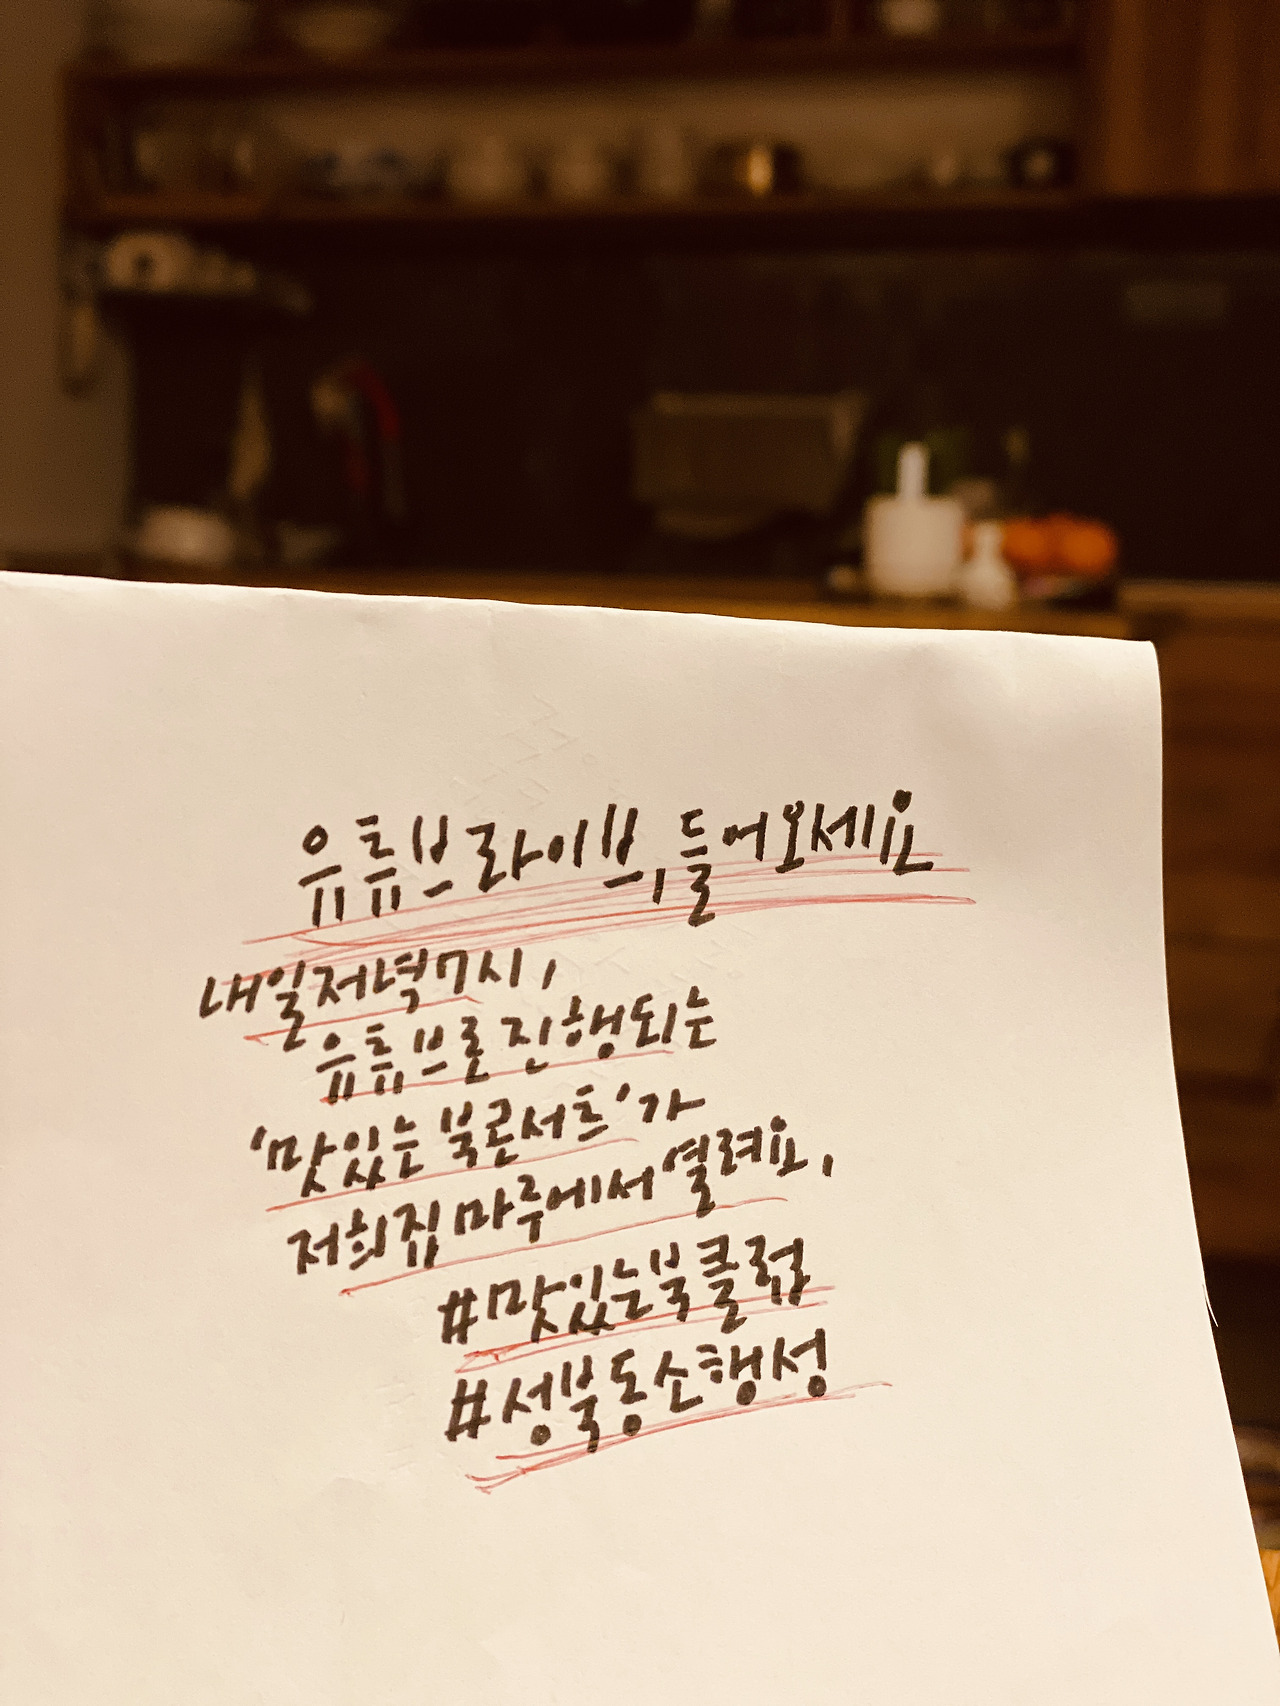 유튜브 라이브, 들어오세요
내일 저녁 7시,
유튜브로 진행되는
'맛있는 북콘서트'가
저희집 마루에서 열려요,
#맛있는북클럽
#성북동소행성